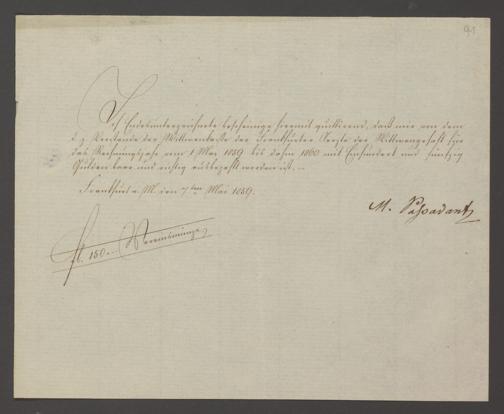 91
Ich Endesunterzeichnete bescheinige hiermit quittirend, daß mir von dem
z. z. Vorstande der Wittwenkasse der Frankfurter Aerzte der Wittwengehalt für
das Rechnungsjahr vom 1 Mai 1859 bis dahin 1860 mit Einhundert und fünfzig
Gulden baar und richtig ausbezahlt worden ist.
Frankfurt a. M. den 7ten Mai 1859.
M. Passavant
fl. 150.– Vereinsmünze